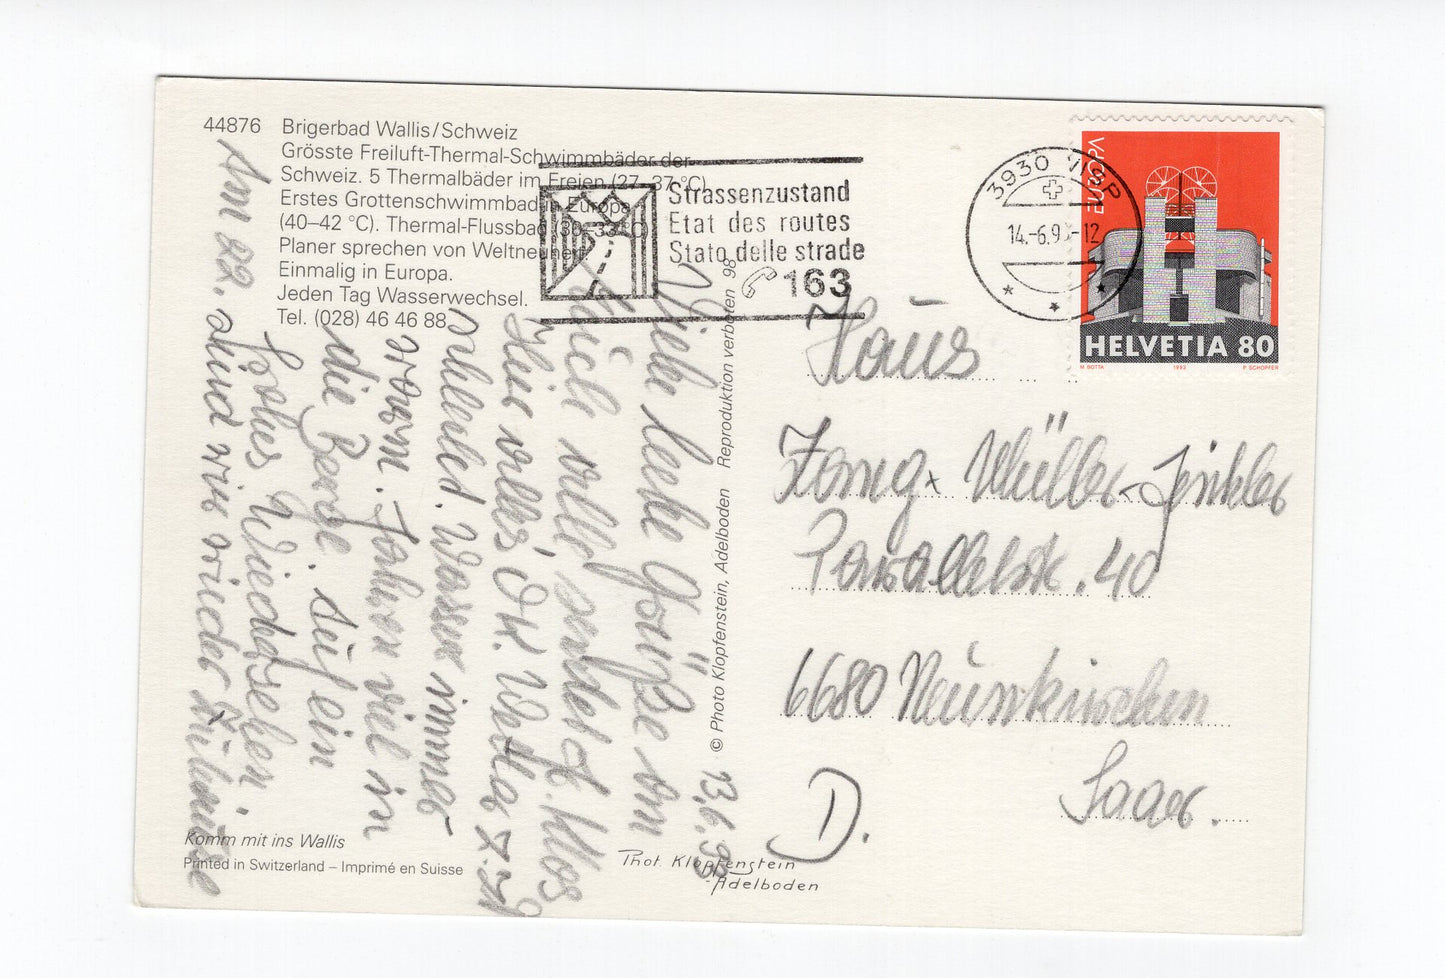 44876 Brigerbad Wallis/Schweiz
Grösste Freiluft-Thermal-Schwimmbäder der
Schweiz. 5 Thermalbäder im Freien (27–37 °C)
Erstes Grottenschwimmbad in Europa
(40–42 °C). Thermal-Flussbad (30–33 °C)
Planer sprechen von Weltneuheit
Einmalig in Europa.
Jeden Tag Wasserwechsel.
Tel. (028) 46 46 88
Strassenzustand
Etat des routes
Stato delle strade
163
3930 VISP
14.-6.9 -12
EUROPA
HELVETIA 80
M. BOTTA 1993 P. SCHOPFER
13.6.93
Viele liebe Grüße an
Euch alle sendet Klos
Hier alles OK. Wetter z.Zt
Wasser immer
warm. Fahren viel in
die Berge.
Wiedersehen.
Am 22. sind wir wieder
Haus
Müller-
Parallelstr. 40
6680 Neunkirchen
Saar.
D.
© Photo Klopfenstein, Adelboden Reproduktion verboten 98
Komm mit ins Wallis
Printed in Switzerland – Imprimé en Suisse
Phot. Klopfenstein
Adelboden